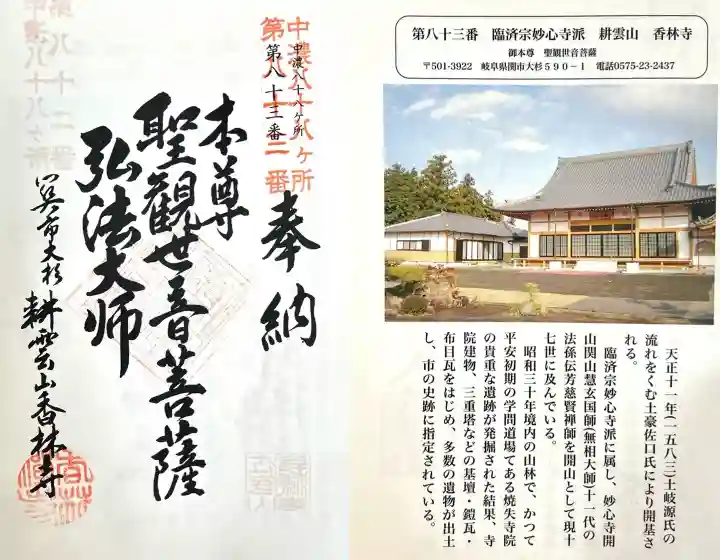 中濃八十八ヶ所
第八十二番
中濃八十八ヶ所
第八十三番
奉納
本尊
聖觀世音菩薩
弘法大师
関市大杉
耕雲山香林寺
第八十三番 臨済宗妙心寺派 耕雲山 香林寺
御本尊 聖観世音菩薩
〒501-3922 岐阜県関市大杉590-1 電話0575-23-2437
天正十一年(一五八三土岐源氏の
流れをくむ土豪佐口氏により開基さ
れる。
臨済宗妙心寺派に属し、妙心寺開
山関山慧玄国師(無相大師)十一代の
法孫伝芳慈賢禅師を開山として現十
七世に及んでいる。
昭和三十年境内の山林で、かつて
平安初期の学問道場てある焼失寺院
の貴重な遺跡が発掘された結果、寺
院建物、三重塔などの基壇・鎧瓦・
布目瓦をはじめ、多数の遺物が出土
し、市の史跡に指定されている。